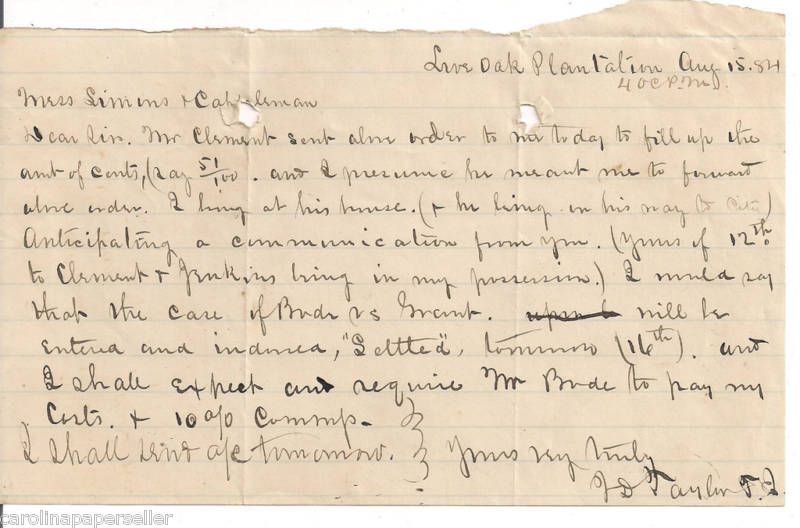 Live Oak Plantation Aug 15.84
4 OC P.M.
Mess Simons & Cappleman
Dear Sir. Mr Clement sent above order to me today to fill up the
amt of costs, (say 51/100. and I presume he meant me to forward
above order. I being at his house. (& he being on his way to)
Anticipating a communication from you. (Yours of 12th.
to Clement & Jenkins being in my possession.) I would say
that the case of Bode vs Grant. will be
entered and indorsed, "Settled", tomorrow (16th). and
I shall expect and require Mr Bode to pay my
Costs. & 10 o/o Commp-
I shall send a/c tomorrow. Yours very truly
J D Taylor T.J.
carolinapaperseller
carolinapaperseller